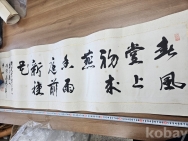 春風
堂上
初來
燕
香雨
庭前
新種
花
kobay